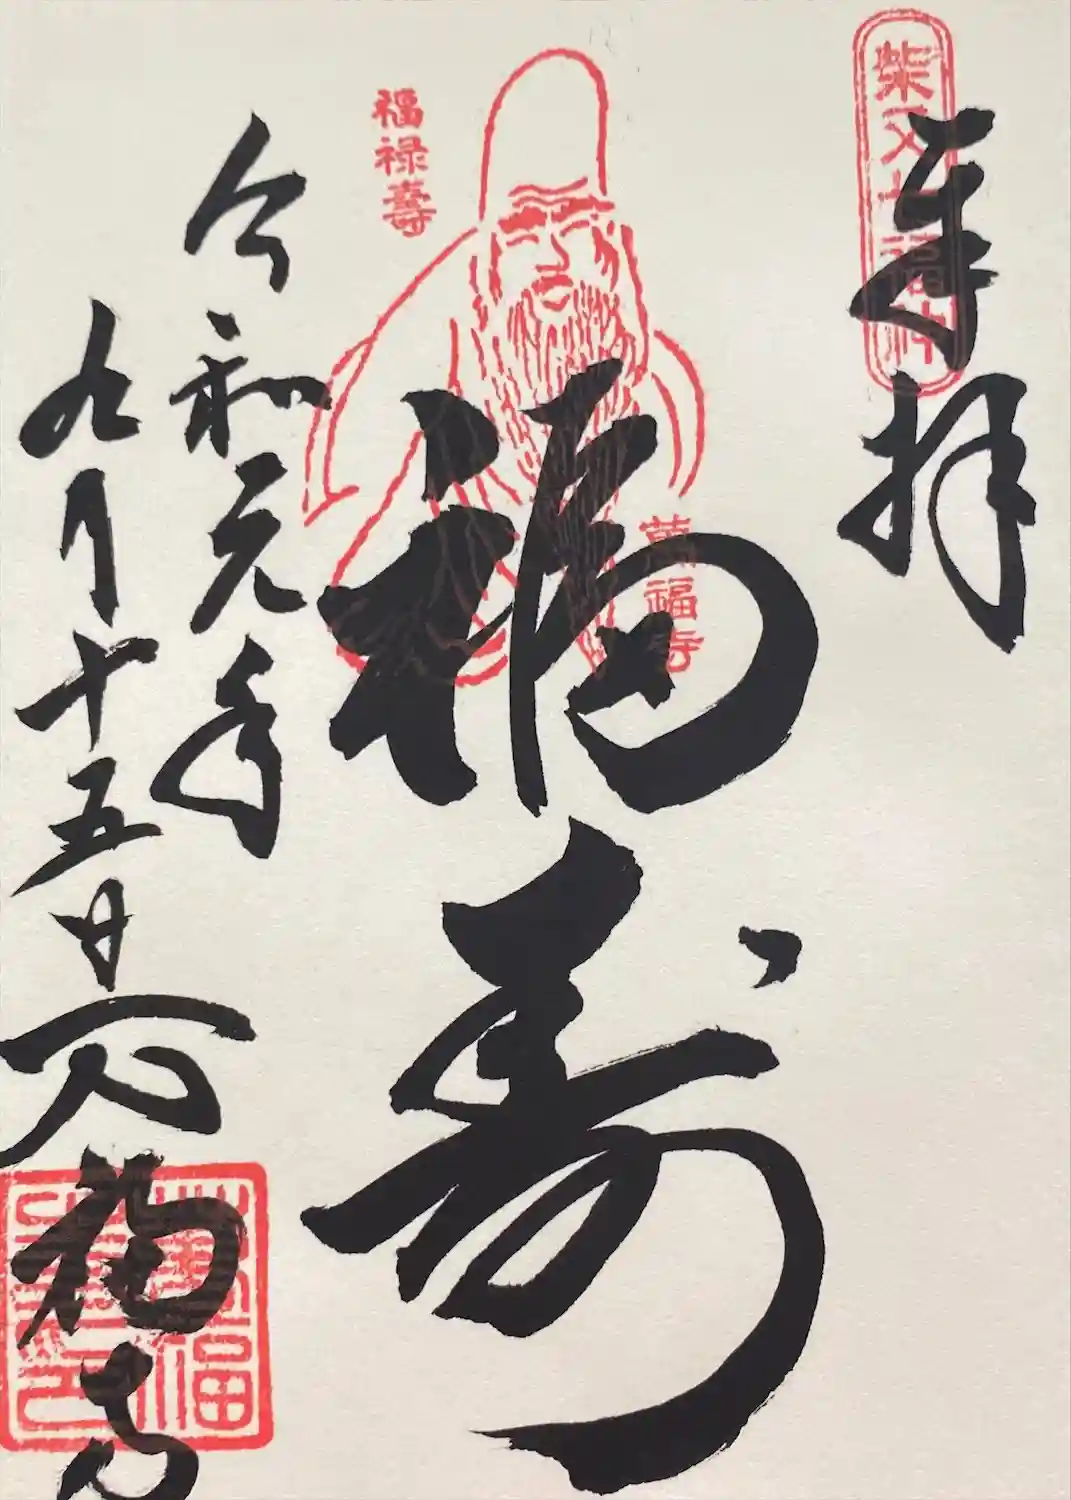 奉拝
柴又七福神
福寿
福禄壽
萬福寺
令和元年
九月十五日
万福寺
萬福寺印